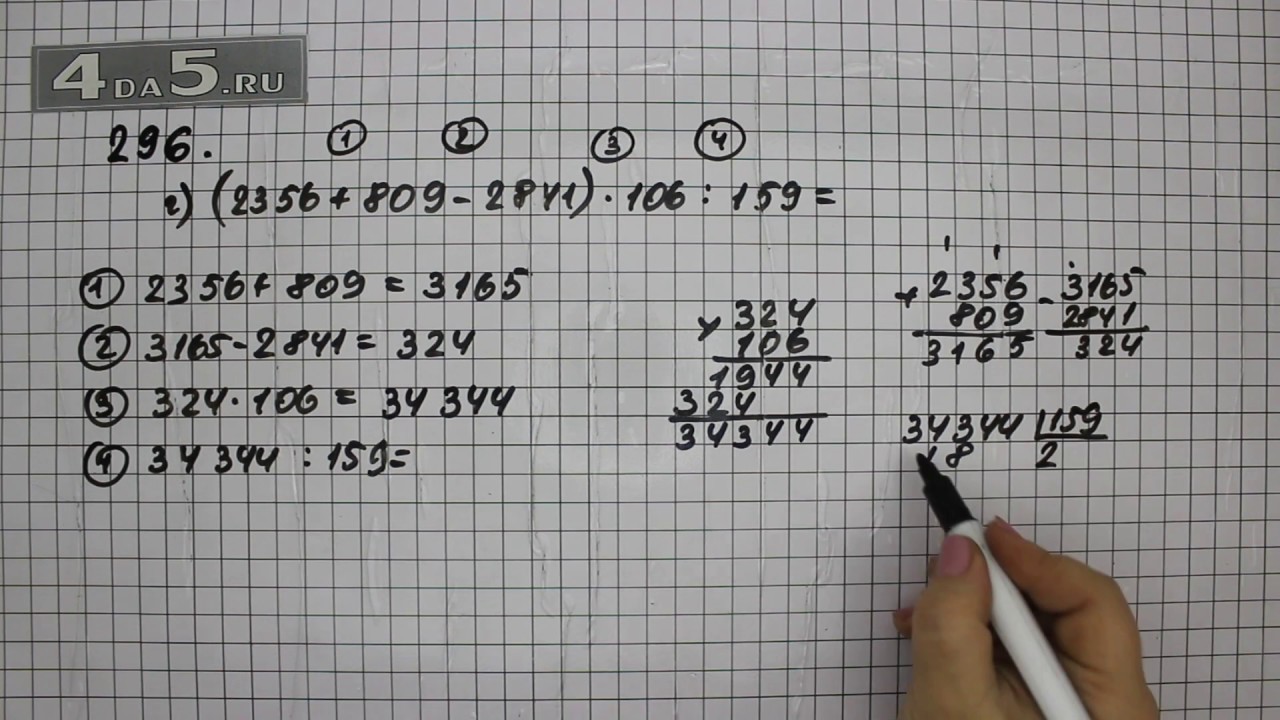 4DA5.RU
296.
1 2 3 4
г) (2356 + 809 - 2841) · 106 : 159 =
1 2356 + 809 = 3165
2 3165 - 2841 = 324
3 324 · 106 = 34 344
4 34 344 : 159 =
× 324
106
1944
324
34344
1 1
+ 2356
809
3165
- 3165
2841
324
34344 159
18 2